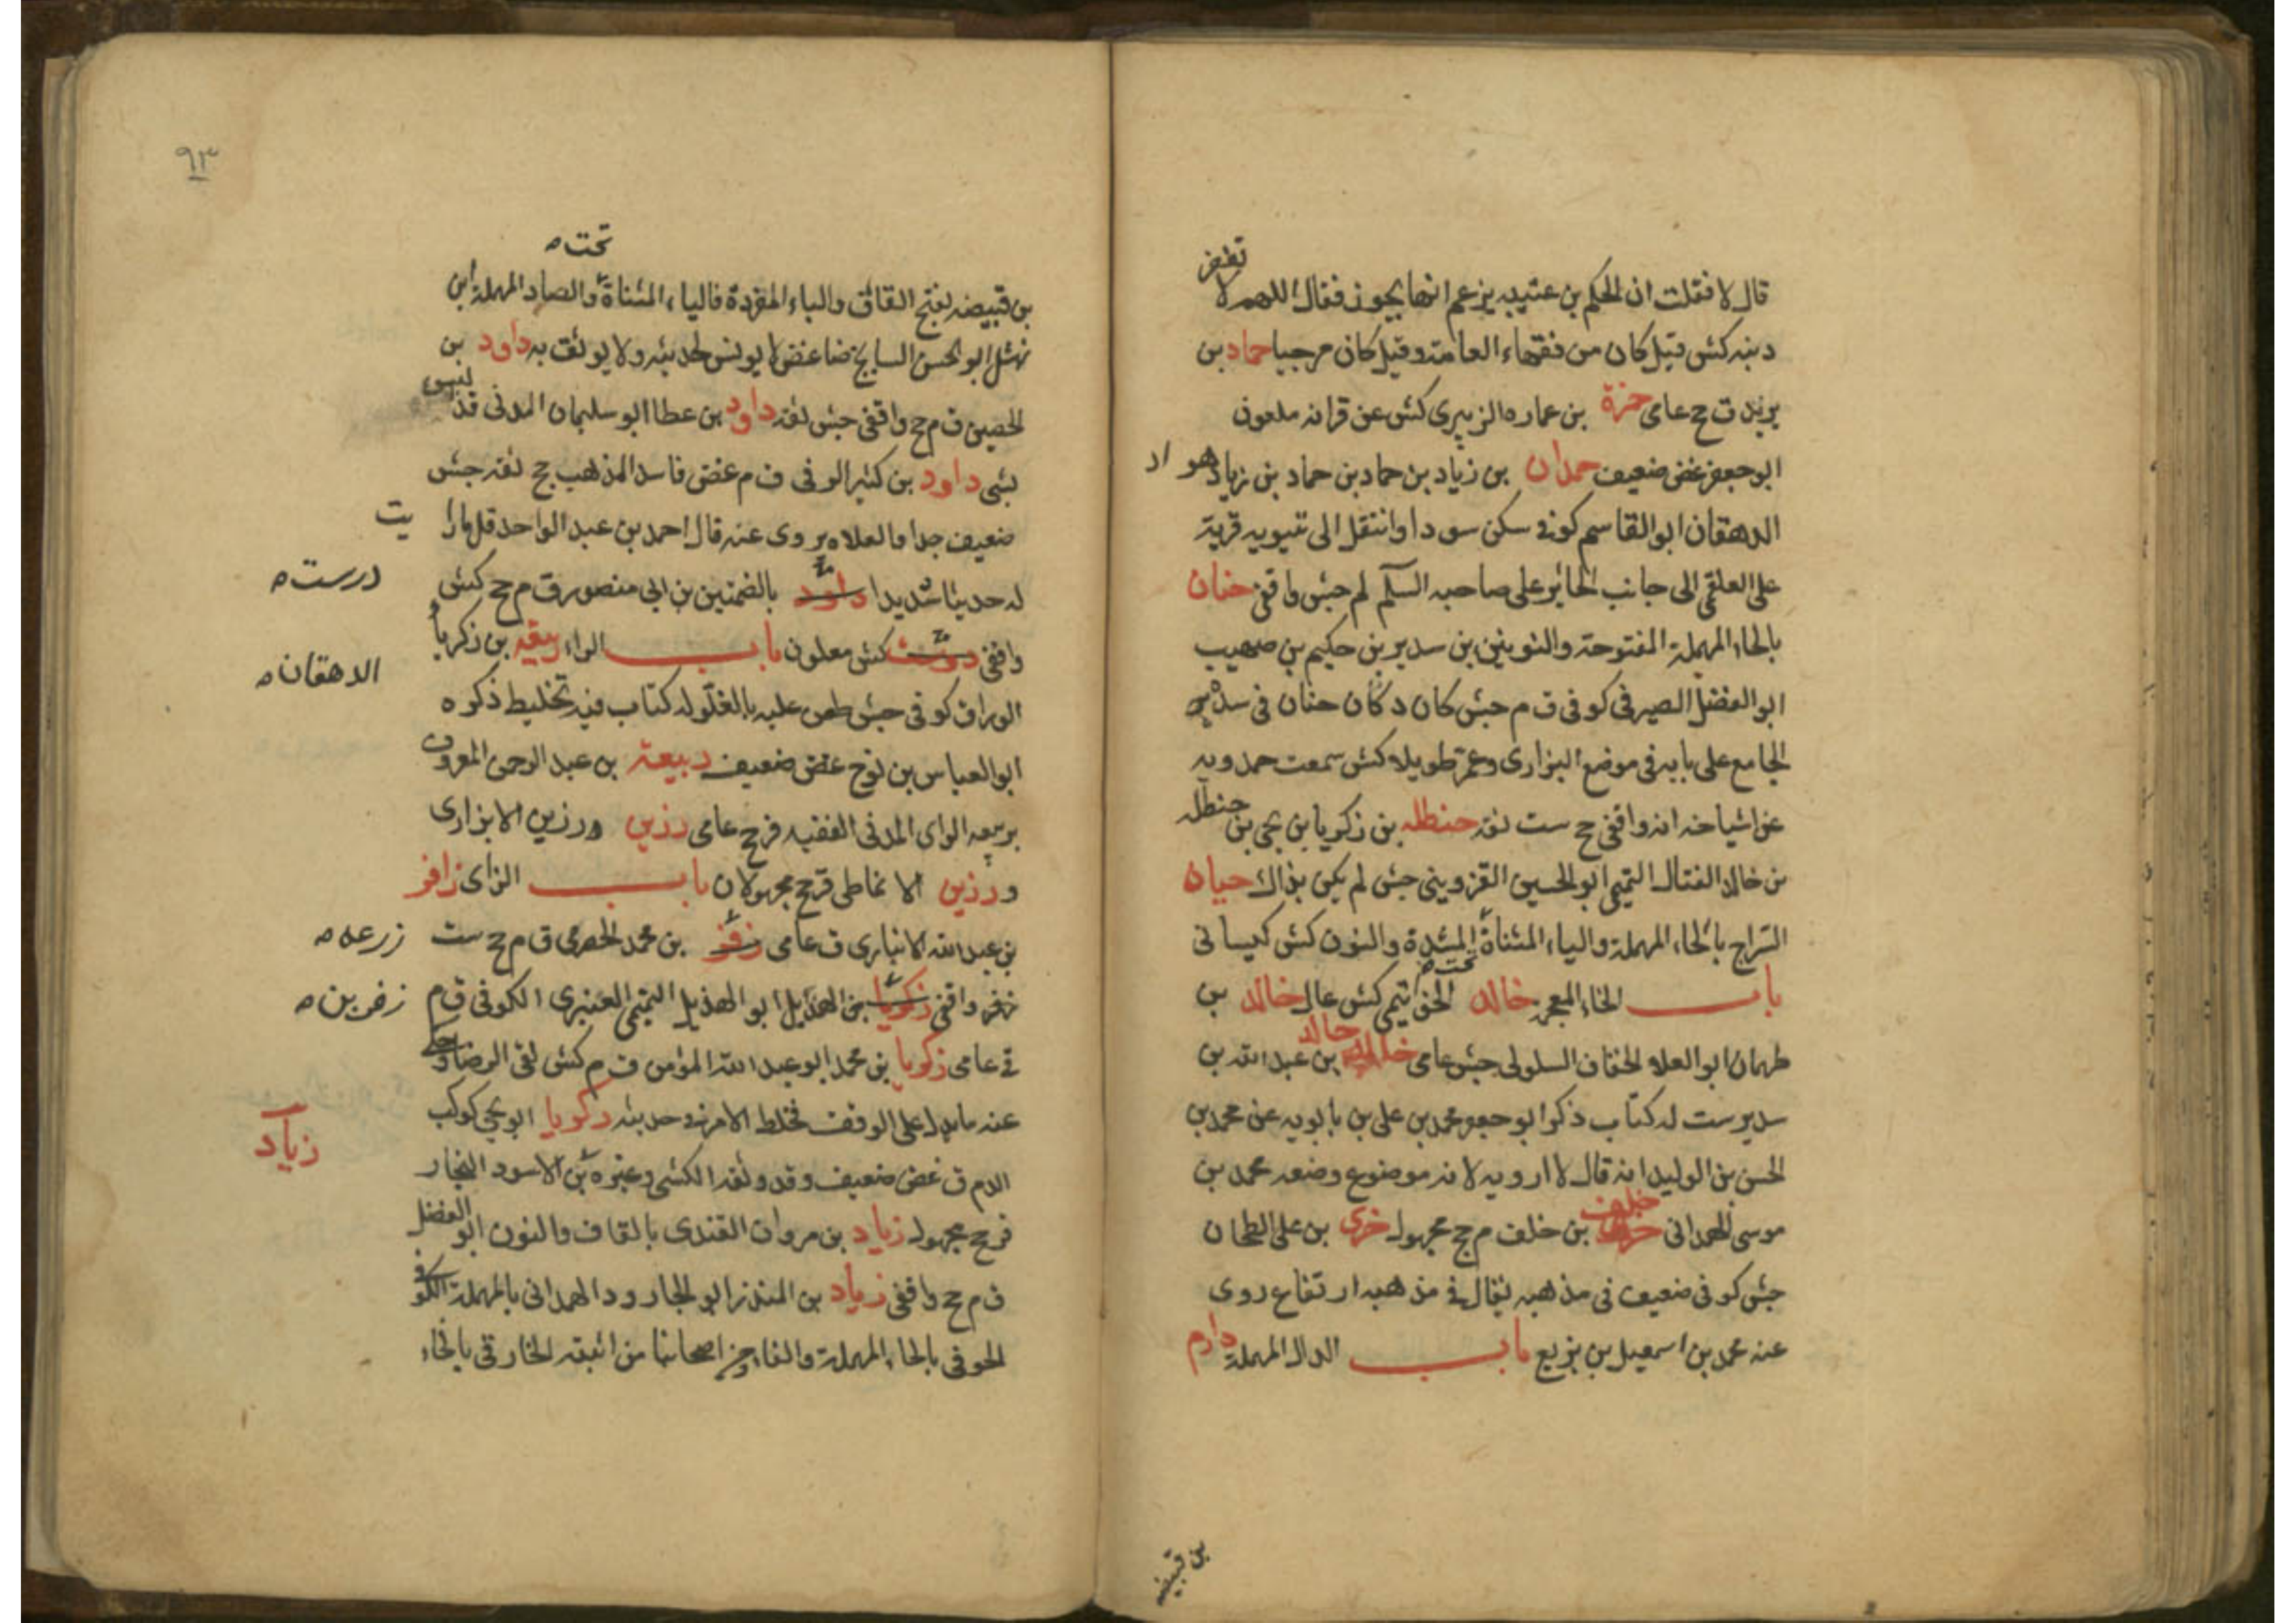 قال لا فقلت ان الحكم بن عتيبه يزعم انها يجوز فقال اللهم لا تغفر
ذنبه كش قيل كان من فقهاء العامة وقيل كان مرجيا حماد بن
يزيد ق ج عامى حمزة بن عماره الزبيرى كش عن قرانه ملعون
ابو جعفر غض ضعيف حمدان بن زياد بن حماد بن حماد بن زياد هوار
الدهقان ابو القاسم كوفى سكن سودا وانتقل الى نينويه قرية
على العلقمى الى جانب الحائر على صاحبه السلم لم جش واقفى حنان
بالحاء المهملة المفتوحة والنونين بن سدير بن حكيم بن صهيب
ابو الفضل الصيرفى كوفى ق م جش كان دكان حنان فى سدة
الجامع على بابه فى موضع البزارى وعمر طويلا كش سمعت حمدويه
عن اشياخه انه واقفى ج ست ثقه حنظله بن زكريا بن يحيى بن حنظله
بن خالد القتال التميمى ابو الحسين القزوينى جش لم يكن بذاك حيان
السراج بالحاء المهملة والياء المثناة تحت المشددة والنون كش كيسانى
باب الخاء المعجمه خالد تيمى كش عال خالد بن
طهمان ابو العلاء الخفاف السلولى جش عامى خالد بن عبد الله بن
سدير ست له كتاب ذكر ابو جعفر محمد بن على بن بابويه عن محمد بن
الحسن بن الوليد انه قال لا ارويه لانه موضوع وضعه محمد بن
موسى الهمدانى خلف بن خلف م ج مجهول خيرى بن على الطحان
جش كوفى ضعيف فى مذهبه يقال فى مذهبه ارتفاع روى
عنه محمد بن اسمعيل بن بزيع باب الدال المهملة دارم
بن قبيصه
٩٣
بن قبيصه بفتح القاف والباء المفردة فالياء المثناة تحت والصاد المهملة ابن
نهشل ابو الحسن السايح ضا غض لا يونس لحديثه ولا يوثق به داود بن
الحصين ق م ج واقفى جش ثقه داود بن عطا ابو سليمان المدنى ق ليس
بشى داود بن كثير الرقى ق م غض فاسد المذهب ج ثقه جش
ضعيف جدا والغلاة يروى عنه قال احمد بن عبد الواحد قل ما رايت
له حديثا شديدا درست بالضمتين بن ابى منصور ق م ج كش
واقفى الدهقان كش معلون باب الراء بن زكريا
الوراق كوفى جش طعن عليه بالغلو له كتاب فيه تخليط ذكره
ابو العباس بن نوح غض ضعيف ربيعة بن عبد الرحمن المعروف
بربيعه الراى المدنى الفقيه قر ج عامى رزين ورزين الابزارى
ورزين الانماطى قر ج مجهولان باب الزاى زافر
بن عبد الله الانبارى ق عامى زرعه بن محمد الحضرمى ق م ج ست
واقفى زفر بن الهذيل ابو الهذيل التميمى العنبرى الكوفى ق م
عامى زكريا بن محمد ابو عبد الله المؤمن ق م كش لقى الرضا وحكى
عنه ما يدل على الوقف مختلط الامر فى حديثه زكريا ابو يحيى كوكب
الدم ق غض ضعيف وقد وثقه الكشى وغيره زياد بن الاسود النجار
قر ج مجهول زياد بن مروان القندى بالقاف والنون ابو الفضل
ق م ج واقفى زياد بن المنذر ابو الجارود الهمدانى بالمهملة الكوفى
الحوفى بالحاء المهملة والفاء من اصحابنا من اثبته الخارقى بالخاء